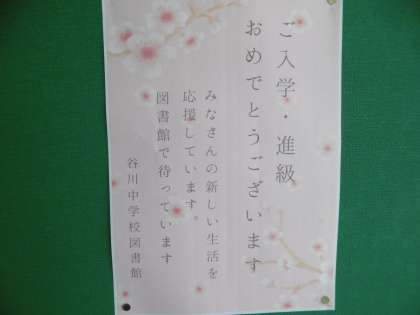 ご入学・進級
おめでとうございます
みなさんの新しい生活を
応援しています。
図書館で待っています
谷川中学校図書館